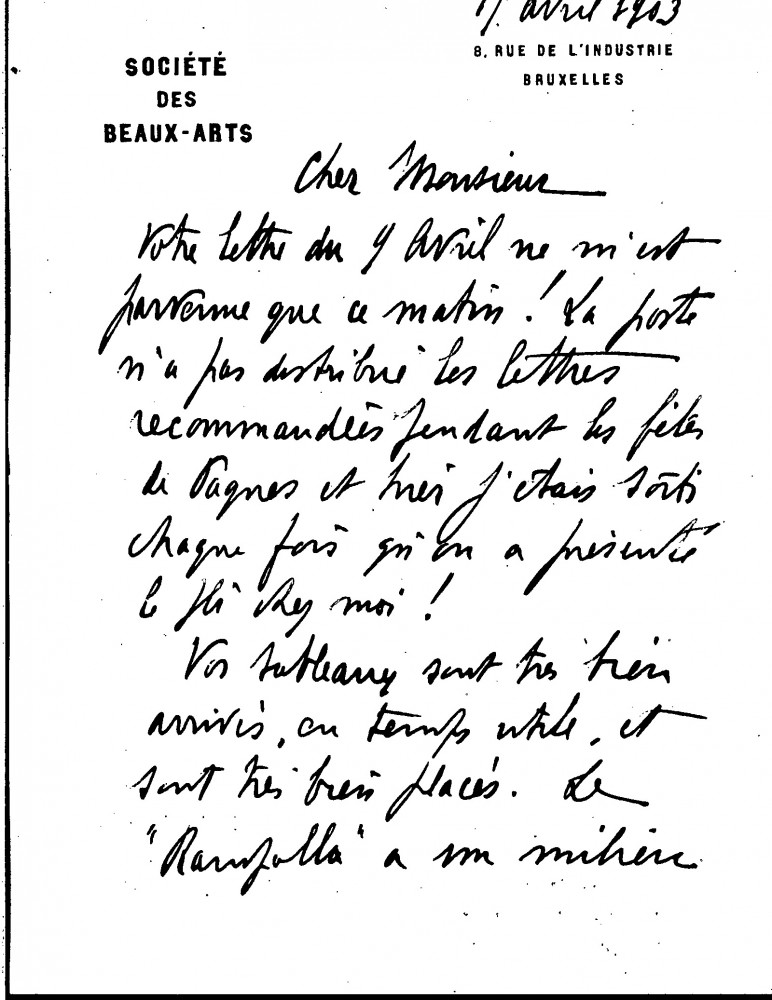 avril 1903
8, RUE DE L'INDUSTRIE
BRUXELLES
SOCIÉTÉ
DES
BEAUX-ARTS
Cher Monsieur
Votre lettre du 9 Avril ne m'est
parvenue que ce matin ! La poste
n'a pas distribué les lettres
recommandées pendant les fêtes
de Paques et j'étais sorti
chaque fois qu'on a présenté
le pli chez moi !
Vos tableaux sont très bien
arrivés, en temps utile, et
sont très bien placés. Le
"Rampolla" a un milieu